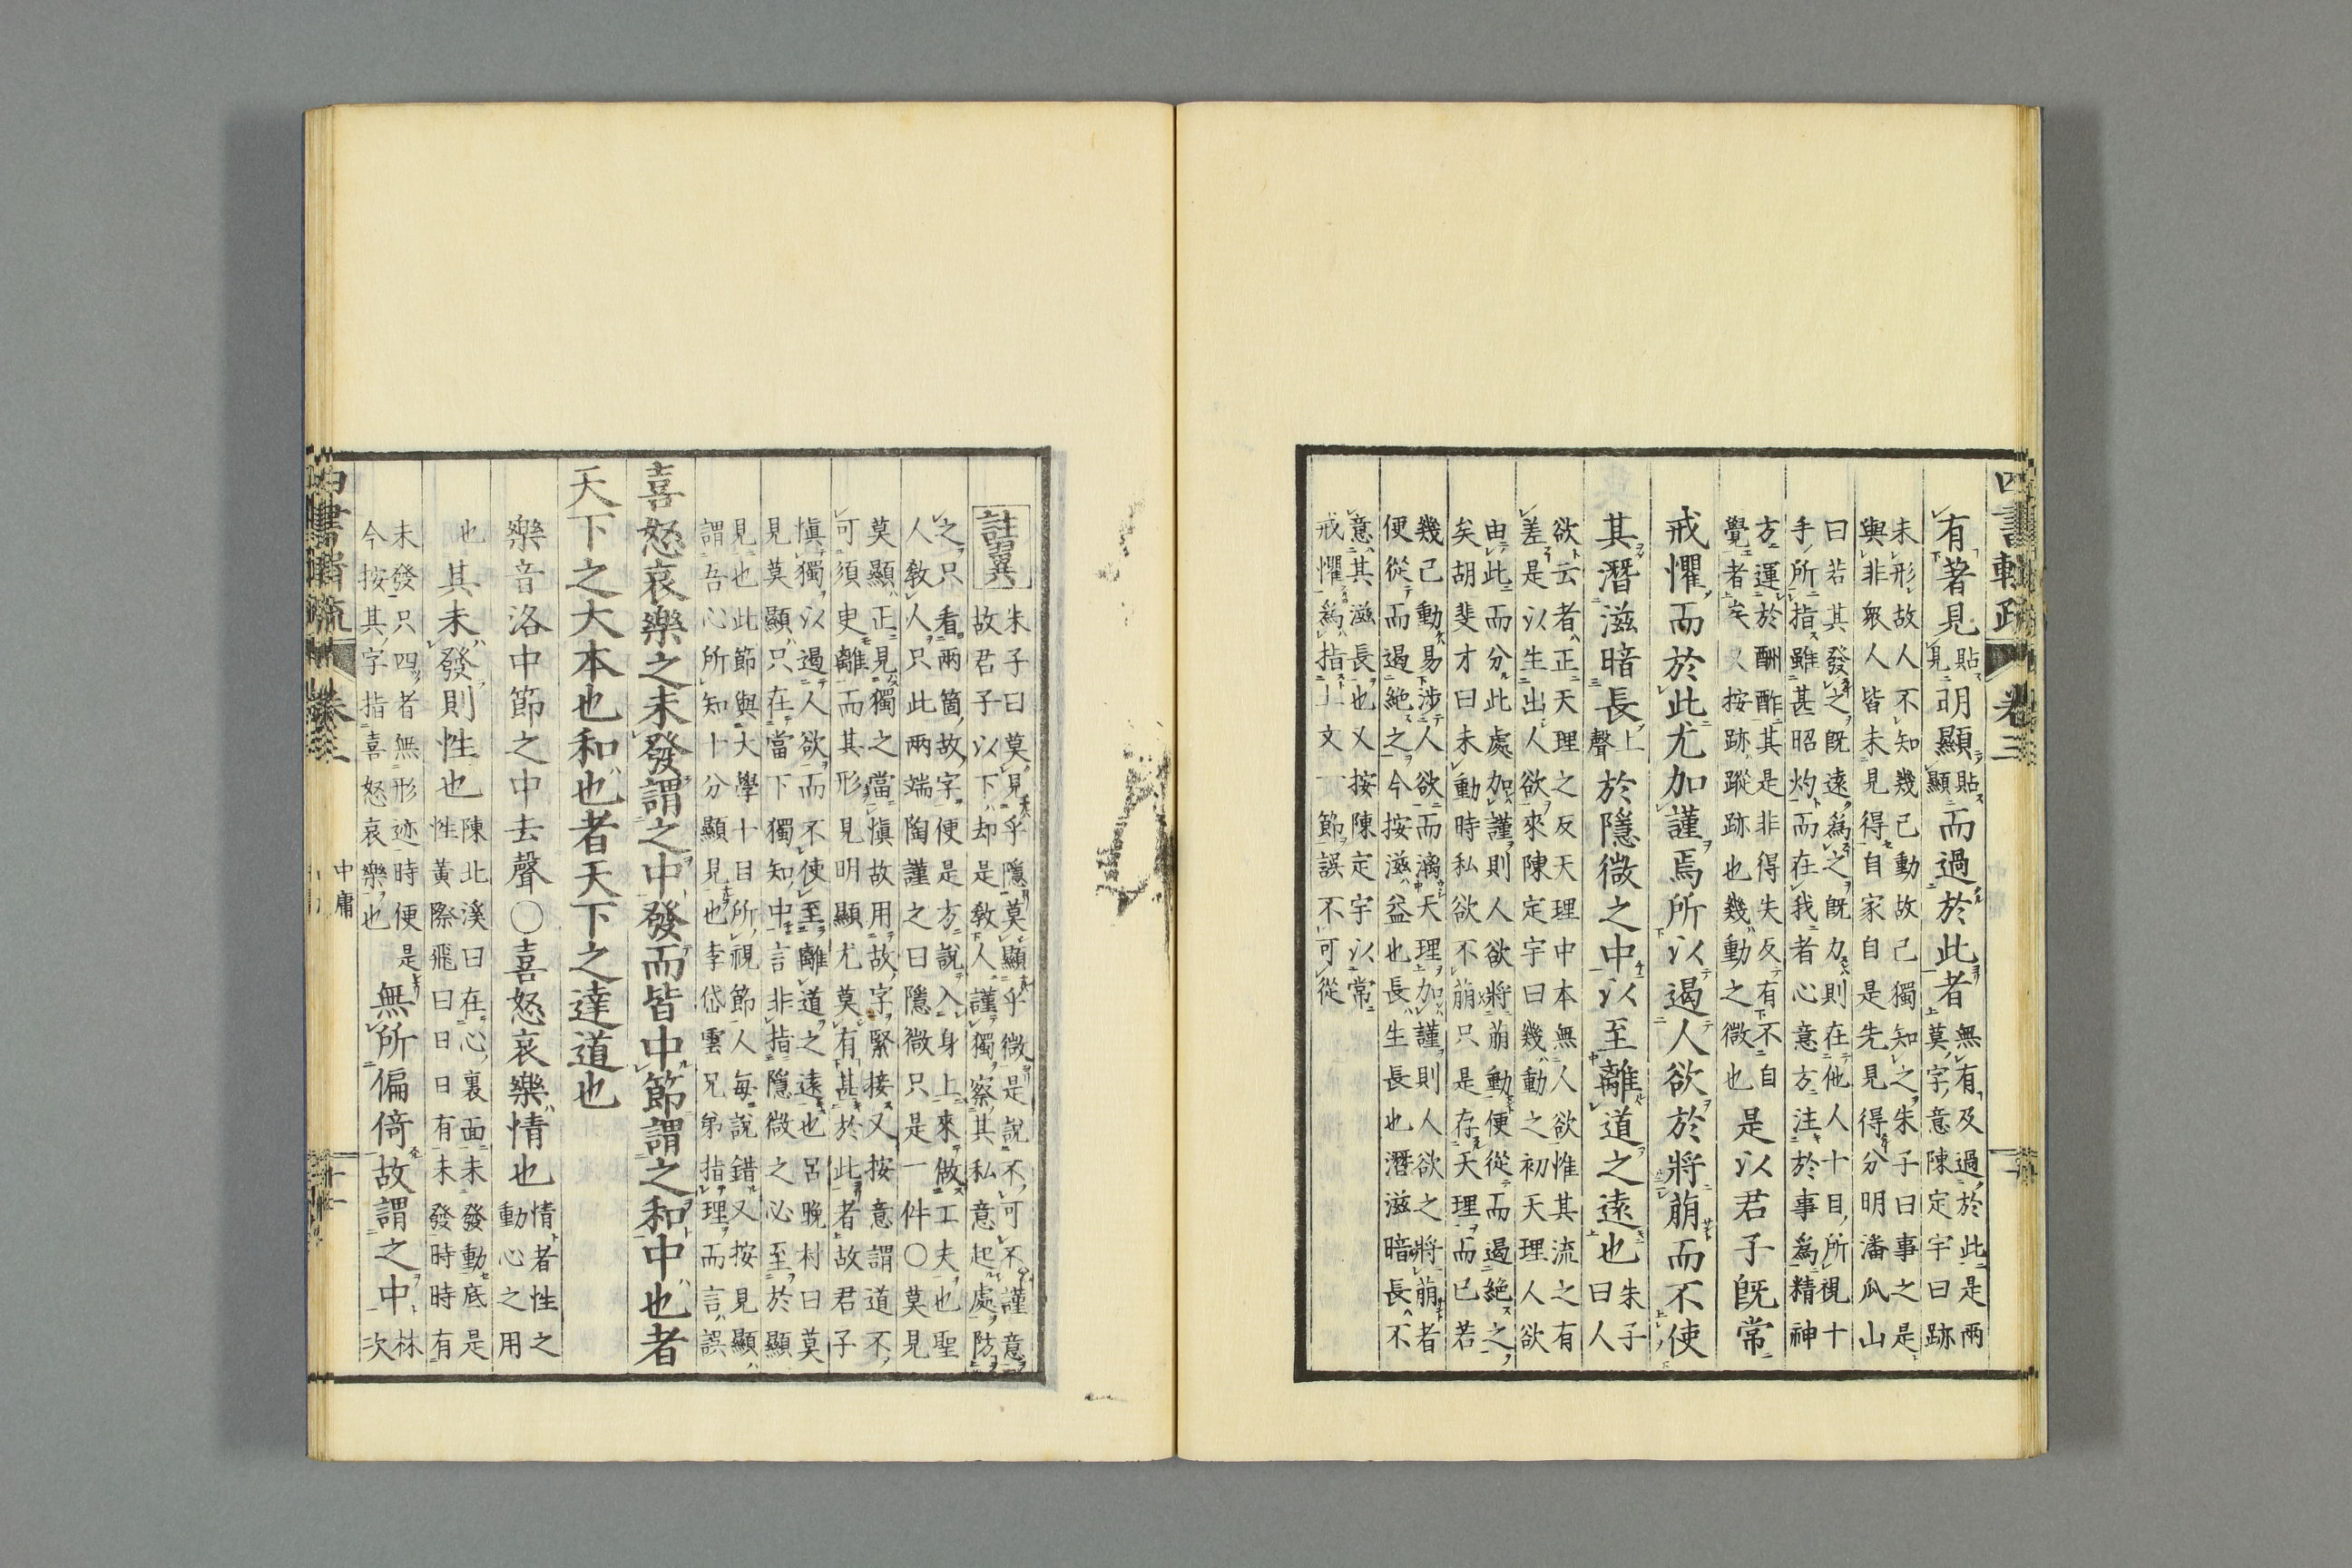 四書輯疏
卷三
有著見貼見明顯貼顯而過於此者無有及過於此是兩
莫字意陳定宇曰跡
未形故人不知幾已動故己獨知之朱子曰事之是
與非衆人皆未見得自家自是先見得分明潘瓜山
曰若其發之旣遠爲之旣力則在他人十目所視十
手所指雖甚昭灼而在我者心意方注於事爲精神
方運於酬酢其是非得失反有不自
覺者矣又按跡蹤跡也幾動之微也是以君子旣常
戒懼而於此尤加謹焉所以遏人欲於將萠而不使
其潛滋暗長上聲於隱微之中以至離道之遠也朱子
曰人
欲云者正天理之反天理中本無人欲惟其流之有
差是以生出人欲來陳定宇曰幾動之初天理人欲
由此而分此處加謹則人欲將萠動便從而遏絕之
矣胡斐才曰未動時私欲不萠只是存天理而已若
幾已動易涉人欲而漓天理加謹則人欲之將萠者
便從而遏絕之今按滋益也長生長也潛滋暗長不
意其滋長也又按陳定宇以常
戒懼爲指上文一節誤不可從
註翼
朱子曰莫見乎隱莫顯乎微是說不可不謹意
故君子以下却是敎人謹獨察其私意起處防
之只看兩箇故字便是方說入身上來做工夫也聖
人敎人只此兩端陶謹之曰隱微只是一件〇莫見
莫顯正見獨之當愼故用故字緊接又按意謂道不
可須臾離而其形見明顯尤莫有甚於此者故君子
愼獨以遏人欲而不使至離道之遠也呂晩村曰莫
見莫顯只在當下獨知中言非指隱微之必至於顯
見也此節與大學十目所視節人每說錯又按見顯
謂吾心所知十分顯見也李岱雲兄弟指理而言誤
喜怒哀樂之未發謂之中發而皆中節謂之和中也者
天下之大本也和也者天下之達道也
樂音洛中節之中去聲〇喜怒哀樂情也情者性之
動心之用
也其未發則性也陳北溪曰在心裏面未發動底是
性黃際飛曰日日有未發時時有
未發只四者無形迹時便是
今按其字指喜怒哀樂也無所偏倚故謂之中林
次
中庸
十一